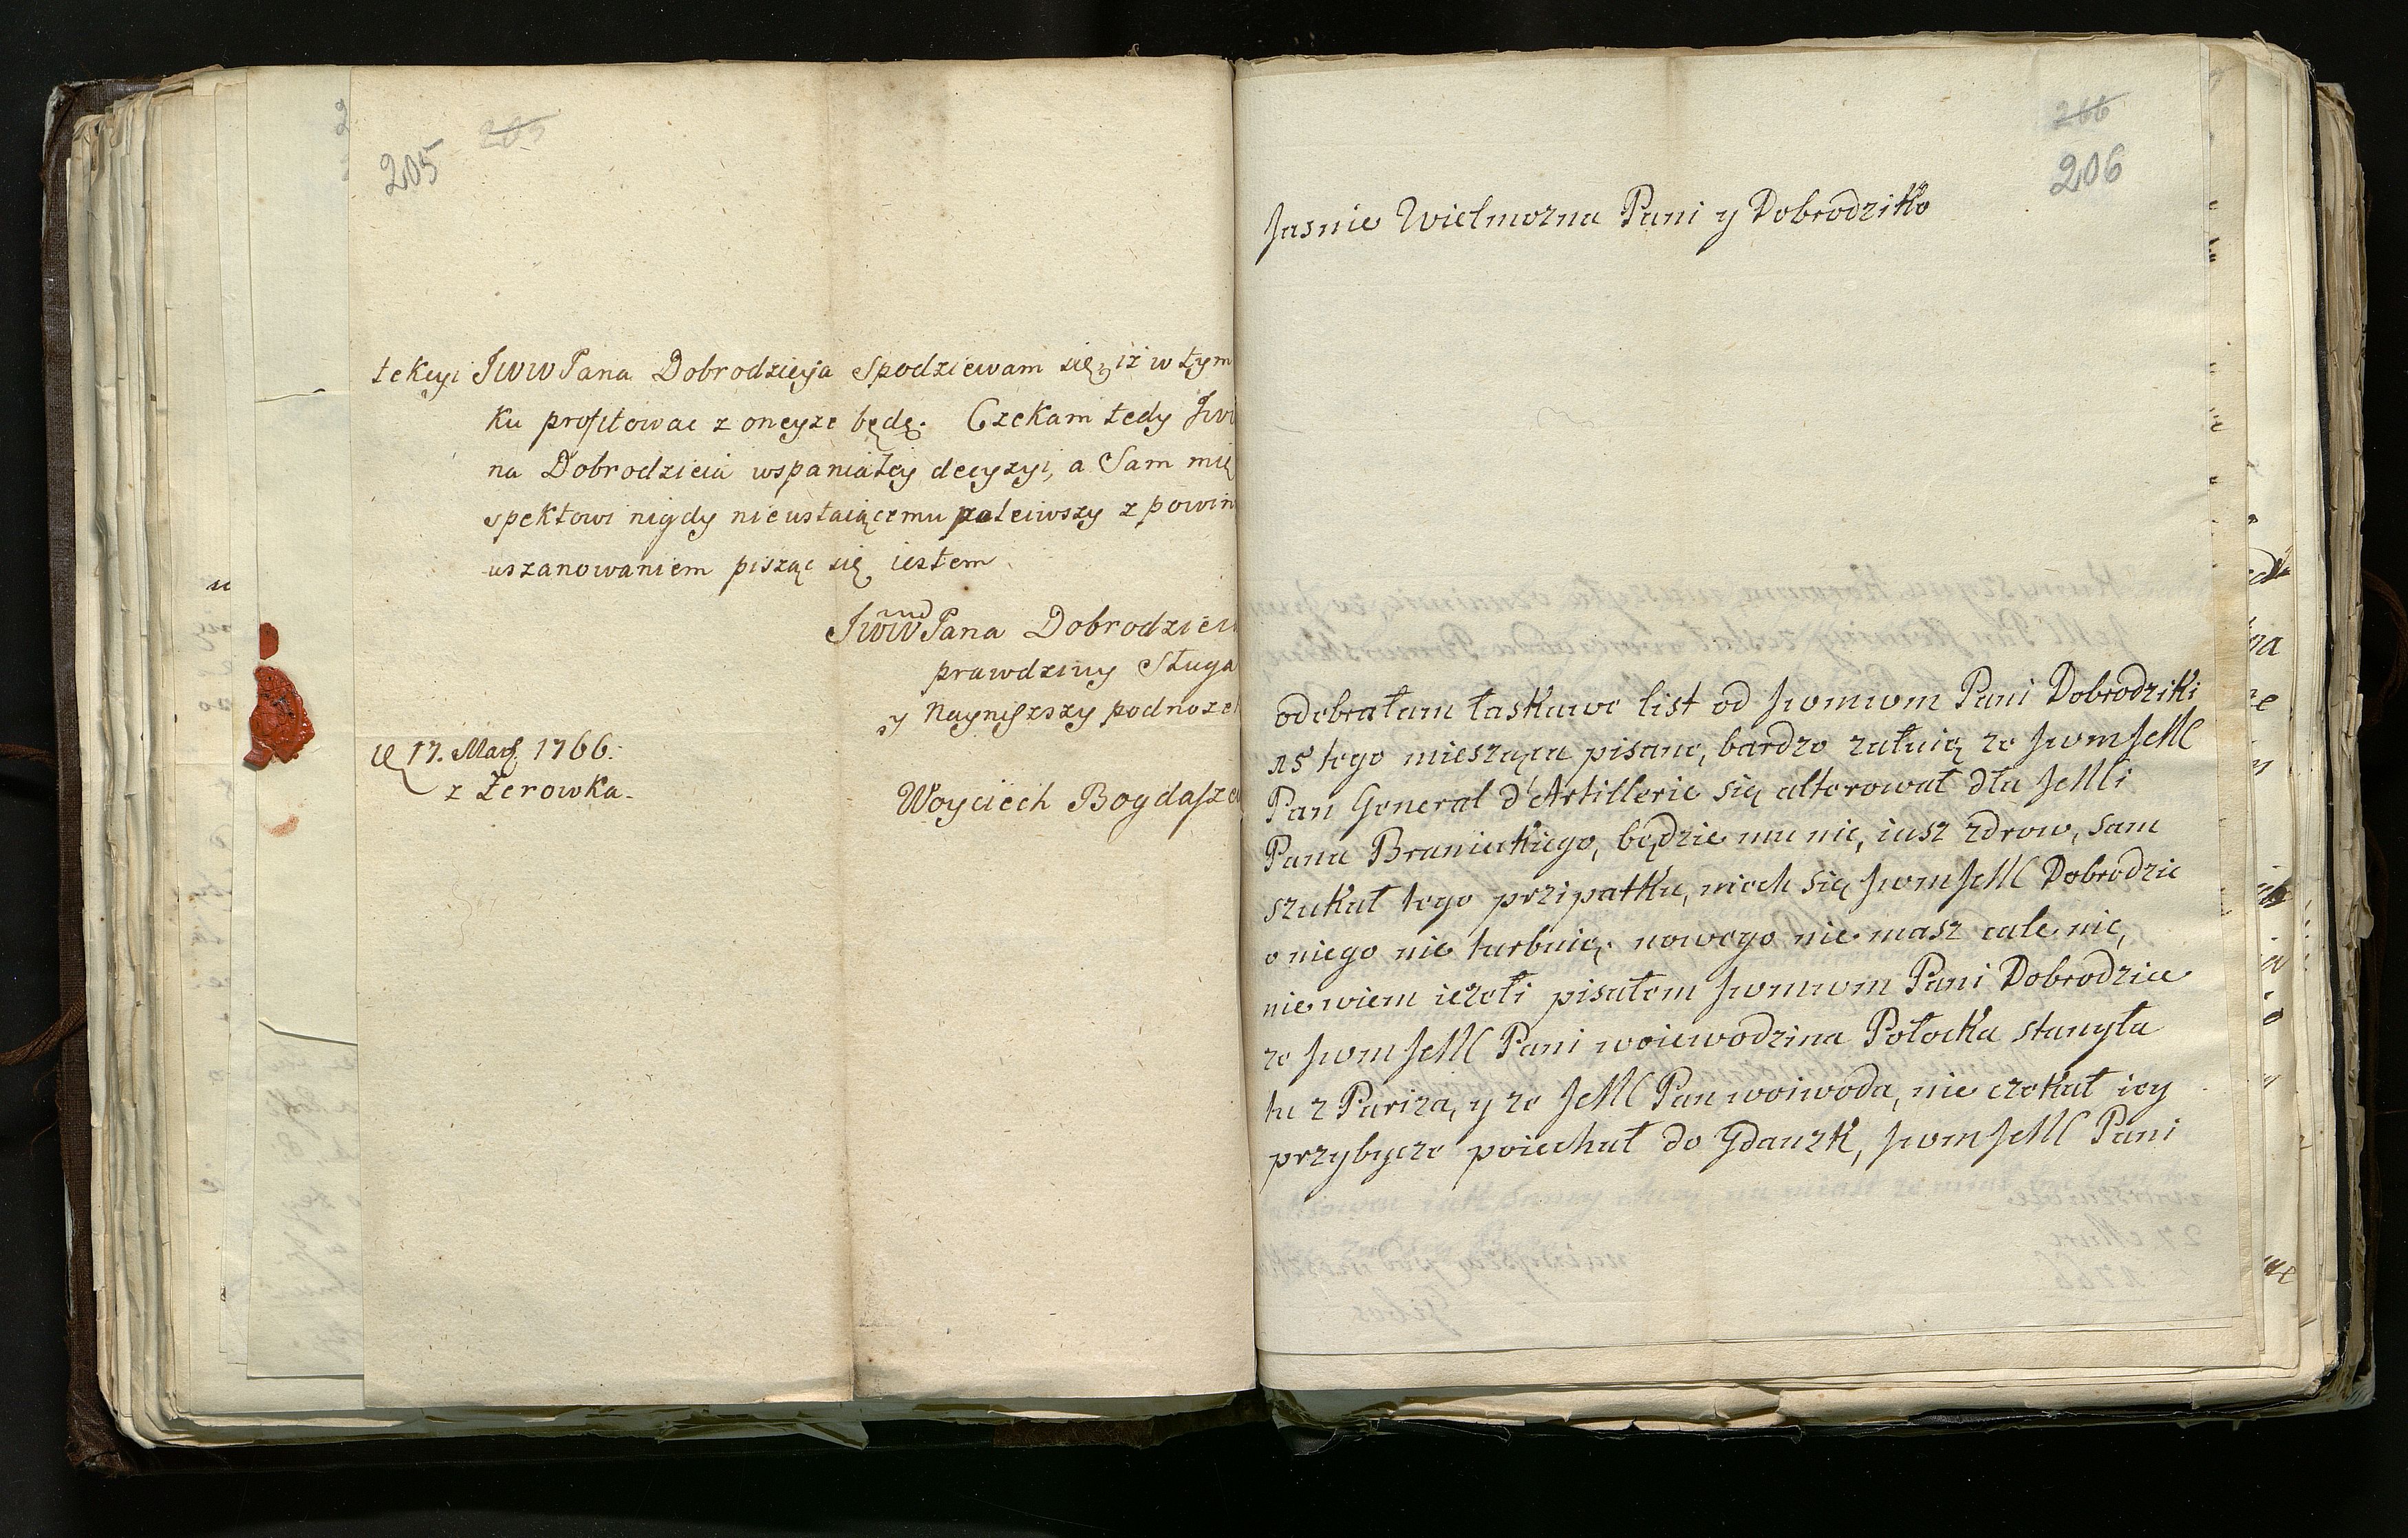 205 203
tekcyi JWW Pana Dobrodzieja spodziewam się, iż w tym
ku profitować z oneyże będę. Czekam tedy JW
na Dobrodzieia wspaniałey decyzyi, a Sam mię
spektowi nigdy nieustaiącemu poleciwszy z powin
uszanowaniem pisząc się iestem
JWW Pana Dobrodzie
prawdziwy Sługa
y Nayniższy podnoże
17. Mar. 1766.
z Żerowka.
Woyciech Bogdasze
266
206
Jasnie Wielmozna Pani y Dobrodziko
odebrałam łaskawe list od Jwmwm Pani Dobrodziki
15 tego miesząca pisane, bardzo załuię ze Jwm JeMC
Pan General d'Artillerie się alterował dla JeMCi
Pana Branickiego, będzie mu nic, iusz zdrow, sam
szukał tego przipatku, niech się Jwm JeMC Dobrodzie
o niego nie turbuię. nowego nie masz cale nic,
nie wiem iezeli pisałem Jwmwm Pani Dobrodzice
ze Jwm JeMC Pani woiewodzina Połocka stanyła
tu z Pariza, y ze JeMC Pan woiwoda, nie czekał iey
przybycze poiechał do Gdanzk, Jwm JeMC Pani